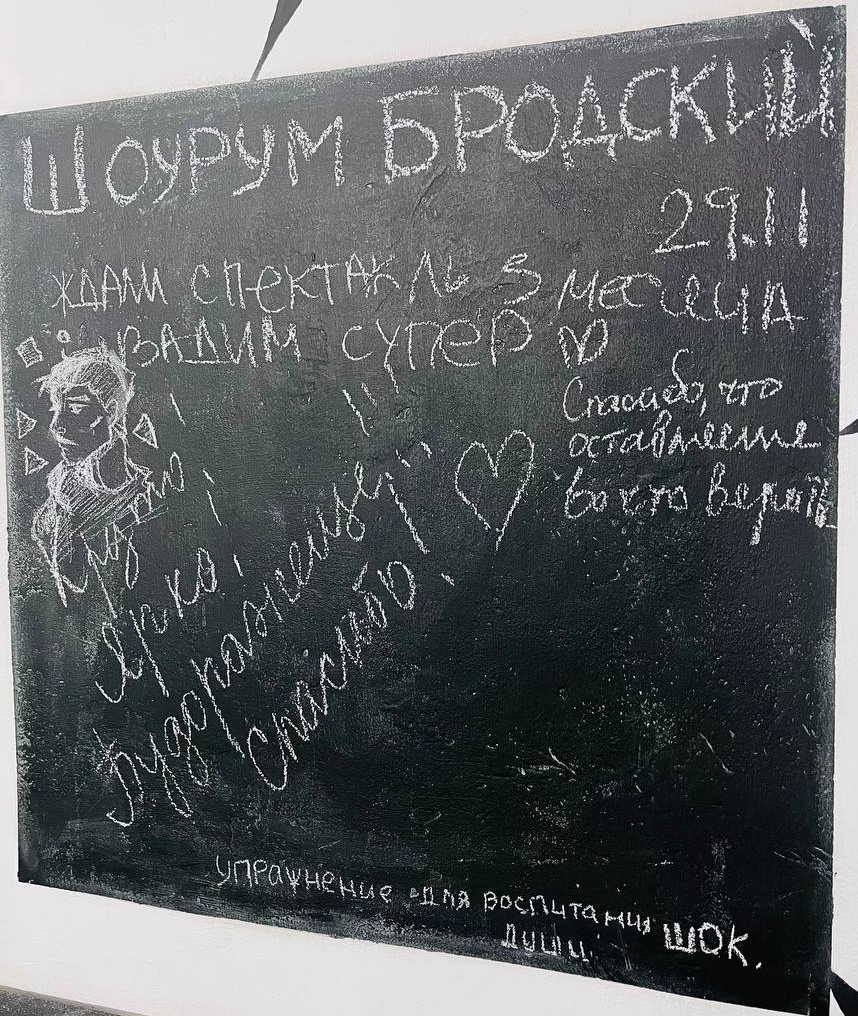 ШОУРУМ БРОДСКИЙ
29.11
ЖДАЛИ СПЕКТАКЛЬ 3 МЕСЯЦА
ВАДИМ СУПЕР
Спасибо, что
оставляете
во что верить
Красиво!
Ярко!
Будоражеще!!
Спасибо!
упражнение для воспитания
души
ШОК.